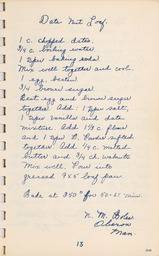 Date Nut Loaf.
1 c. chopped dates
3/4 c. boiling water
1 tspn baking soda
Mix well together and cool.
1 egg beaten
3/4 brown sugar
Beat egg and brown sugar
together Add: 1 tspn salt,
1 tspn vanilla and date
mixture. Add 1 1/2 c. flour
and 1 tspn B. Powder sifted
together. Add 1/4 c. melted
butter and 3/4 ch. walnuts
Mix well. Pour into
greased 9x5 loaf pan
Bake at 350° for 50-60 min.
N. M.
Man.
13